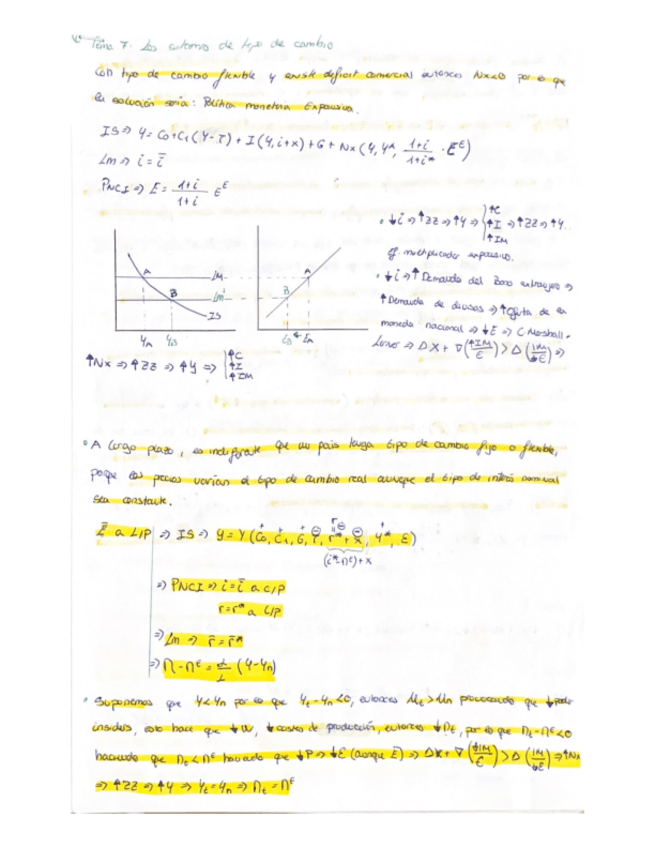 Tema 7: Los sistemas de tipo de cambio
Con tipo de cambio flexible y existe deficit comercial entonces Nx<0 por lo que
la solución sería: Política monetaria Expansiva.
IS⇒ Y = C0+C1(Y-T) + I(Y, i+x) + G + Nx(Y, Y*, 1+i/1+i* · E^E)
LM⇒ i = i̅
PNCI⇒ E = 1+i/1+i E^E
• ↓i ⇒ ↑ZZ ⇒ ↑Y ⇒ ↑C ↑I ↑IM ⇒ ↑ZZ ⇒ ↑Y..
ef. multiplicador expansivo.
• ↓i ⇒ ↑Demanda del bono extranjero ⇒
↑Demanda de divisas ⇒ ↑Oferta de la
moneda nacional ⇒ ↓E ⇒ C. Marshall-
Lerner ⇒ ΔX + ∇(↑IM/E) > Δ(IM/↓E) ⇒
A LM
B LM'
IS
YA YB
A
B
EB ← EA
↑Nx ⇒ ↑ZZ ⇒ ↑Y ⇒ ↑C ↑I ↑IM
• A largo plazo, es indiferente que un pais tenga tipo de cambio fijo o flexible,
porque los precios varían el tipo de cambio real aunque el tipo de interés nominal
sea constante.
a L/P ⇒ IS ⇒ Y = Y(C0, C1, G, T, r* + x, Y*, E)
(i*-Π^e)+x
⇒ PNCI ⇒ i = i̅ a C/P
r = r* a L/P
⇒ LM ⇒ r̅ = r̅*
⇒ Π - Π^E = α/L (Y-Yn)
• Suponemos que Y<Yn por lo que Yt-Yn<0, entonces Ut > Un provocando que ↓poder
sindicos, esto hace que ↓W, ↓costes de producción, entonces ↓Πt, por lo que Πt-Π^E<0
haciendo que Πt<Π^E haciendo que ↓P ⇒ ↓E (aunque E̅) ⇒ ΔX + ∇(↓IM/E) > Δ(IM/↓E) ⇒ ↑Nx
⇒ ↑ZZ ⇒ ↑Y ⇒ Yt = Yn ⇒ Πt = Π^E